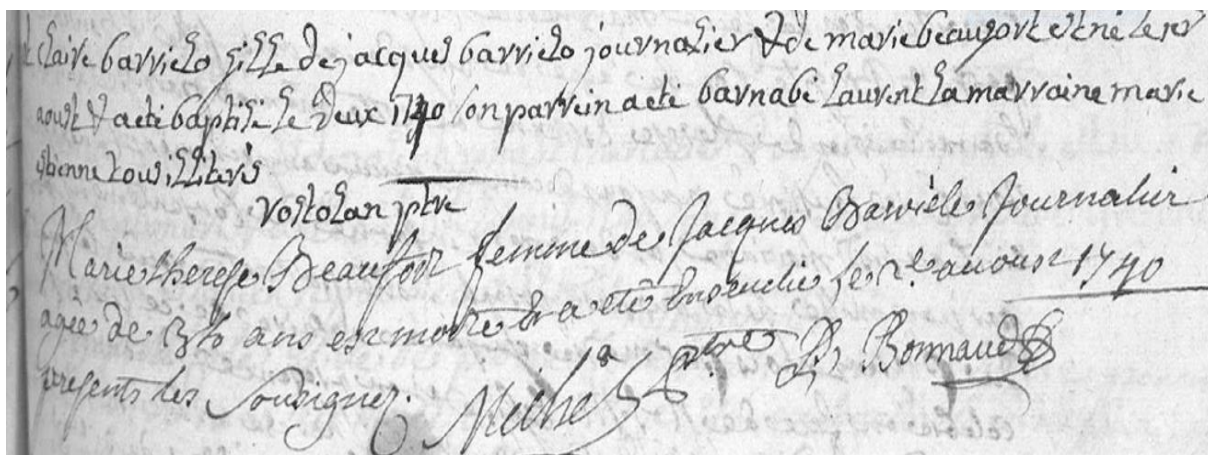 claire barrielo fille de jacques barrielo journalier & de marie beaufort est né le 1er
aoust & a été baptisé le deux 1740 son parrein a eté barnabé laurent la marraine marie
estienne tous illiterés
rostolan ptre
Marie therese Beaufort femme de Jacques Barriele Journalier
agée de ans est morte & a eté Ensevelie le 2e. auoust 1740
presents les Sousignez. Michel ptre B. Bonnaud